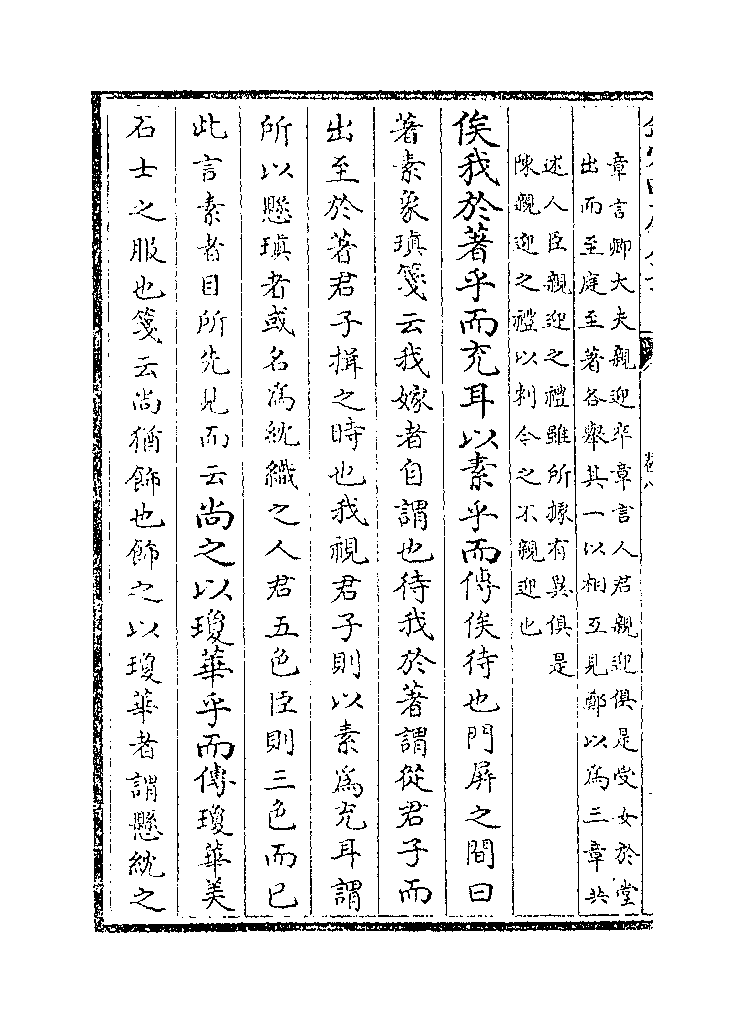 章言卿大夫親迎卒章言人君親迎俱是受女於堂
出而至庭至著各舉其一以相互見鄭以為三章共
述人臣親迎之禮雖所據有異俱是
陳親迎之禮以刺今之不親迎也
俟我於著乎而充耳以素乎而傳俟待也門屏之間曰
著素象瑱箋云我嫁者自謂也待我於著謂從君子而
出至於著君子揖之時也我視君子則以素為充耳謂
所以懸瑱者或名為紞織之人君五色臣則三色而已
此言素者目所先見而云尚之以瓊華乎而傳瓊華美
石士之服也箋云尚猶飾也飾之以瓊華者謂懸紞之